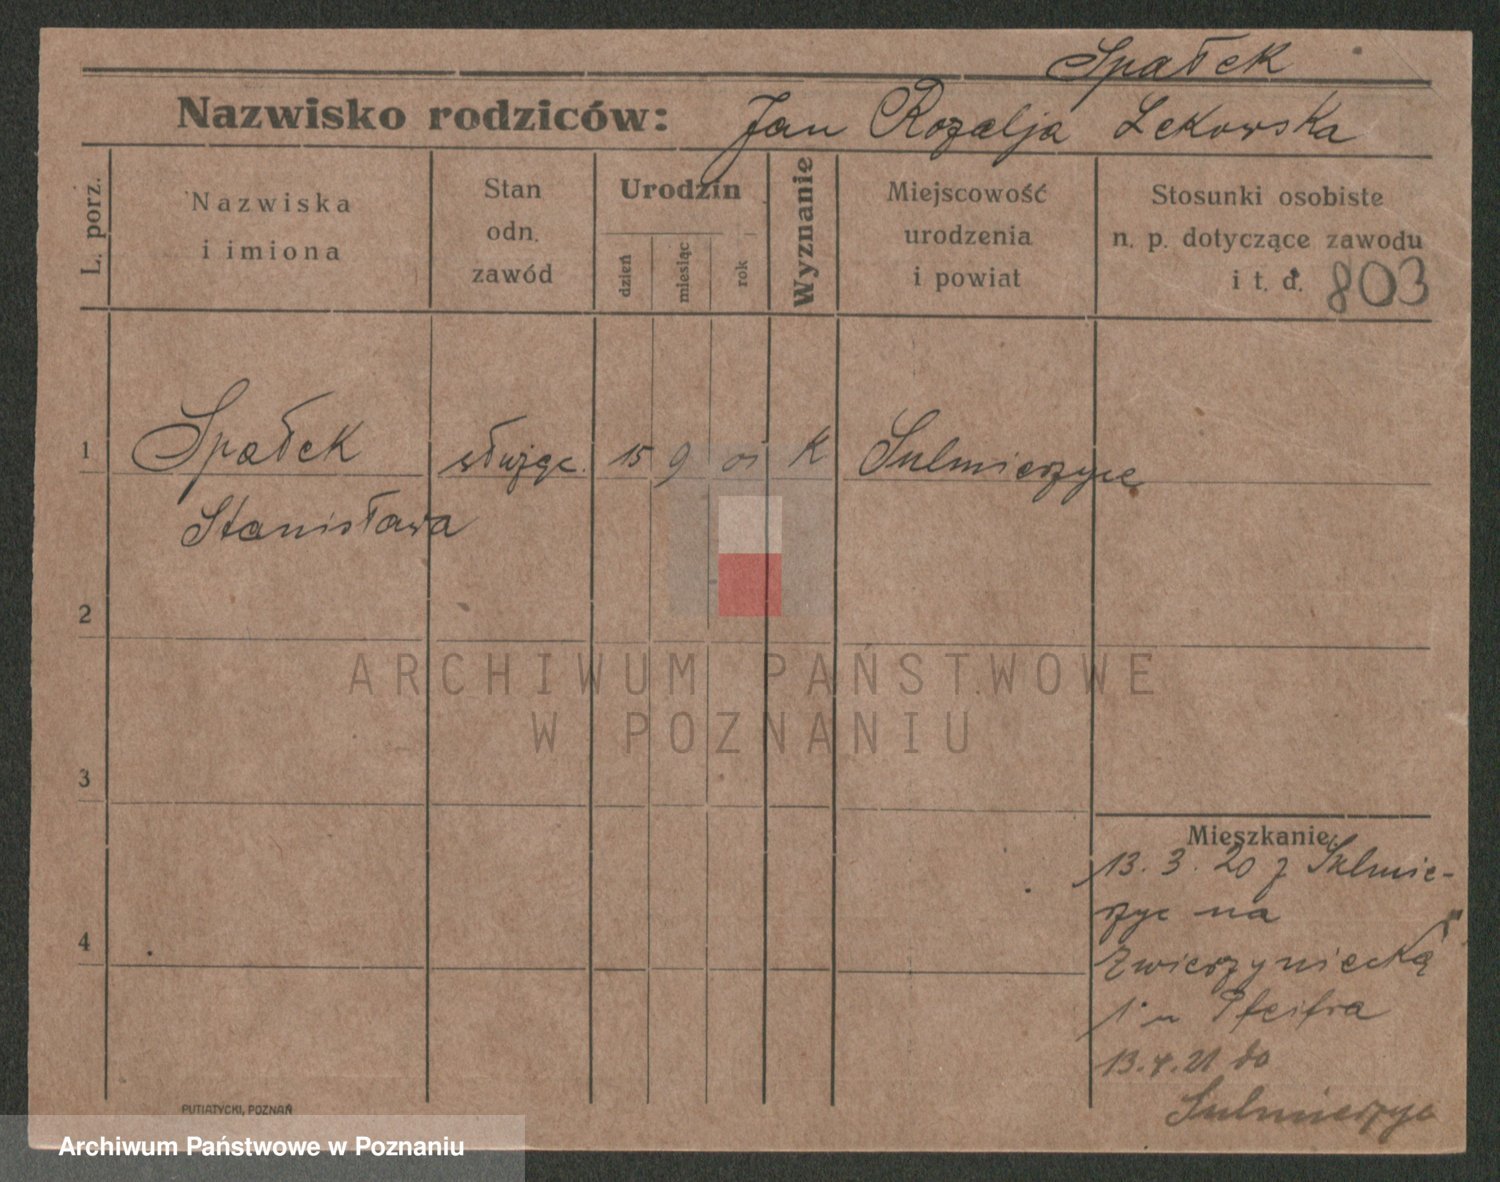 Spałek
Nazwisko rodziców: Jan Rozalja Lekowska
L. porz.
Nazwiska
i imiona
Stan
odn.
zawód
Urodzin
dzień
miesiąc
rok
Wyznanie
Miejscowość
urodzenia
i powiat
Stosunki osobiste
n. p. dotyczące zawodu
i t. d. 803
1 Spałek służąc. 15 9 01 K Sulmierzyce
Stanisława
2
ARCHIWUM PAŃSTWOWE
W POZNANIU
3
Mieszkanie
13. 3. 20 z Sulmie-
rzyc na
4
Zwierzyniecką
1 u Pfeifra
13.4.21 do
Sulmierzyc
PUTIATYCKI, POZNAŃ
Archiwum Państwowe w Poznaniu